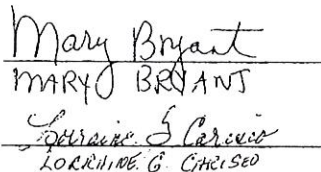 Mary Bryant
MARY BRYANT
Lorraine G Cariseo
LORRAINE G. CARISEO